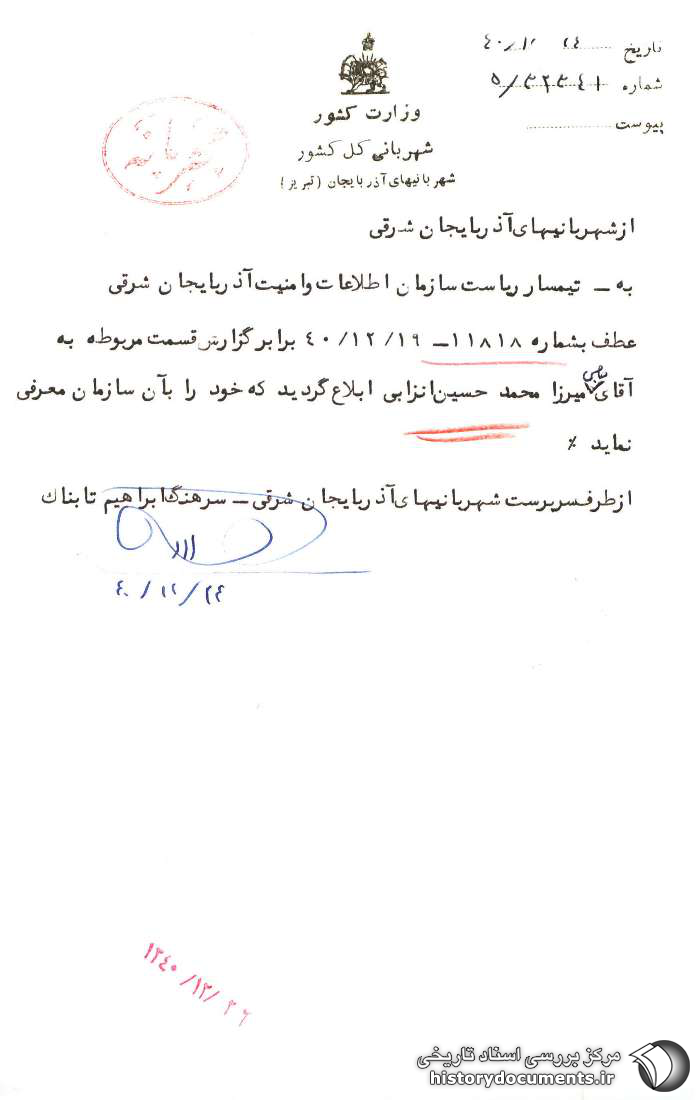 تاریخ ۴۰/۱۲/۲۴
شماره ۵/۳۲۳۴۱
پیوست
وزارت کشور
شهربانی کل کشور
شهربانیهای آذربایجان (تبریز)
محرمانه
از شهربانیهای آذربایجان شرقی
به ـ تیمسار ریاست سازمان اطلاعات و امنیت آذربایجان شرقی
عطف بشماره ۱۱۸۱۸ ـ ۴۰/۱۲/۱۹ برابر گزارش قسمت مربوطه به
آقای میرزا محمد حسین انزابی ابلاغ گردید که خود را بآن سازمان معرفی
نماید ٪
از طرف سرپرست شهربانیهای آذربایجان شرقی ـ سرهنگ ابراهیم تابناک
۴۰/۱۲/۲۴
۱۳۴۰/۱۲/۲۶
مرکز بررسی اسناد تاریخی
historydocuments.ir